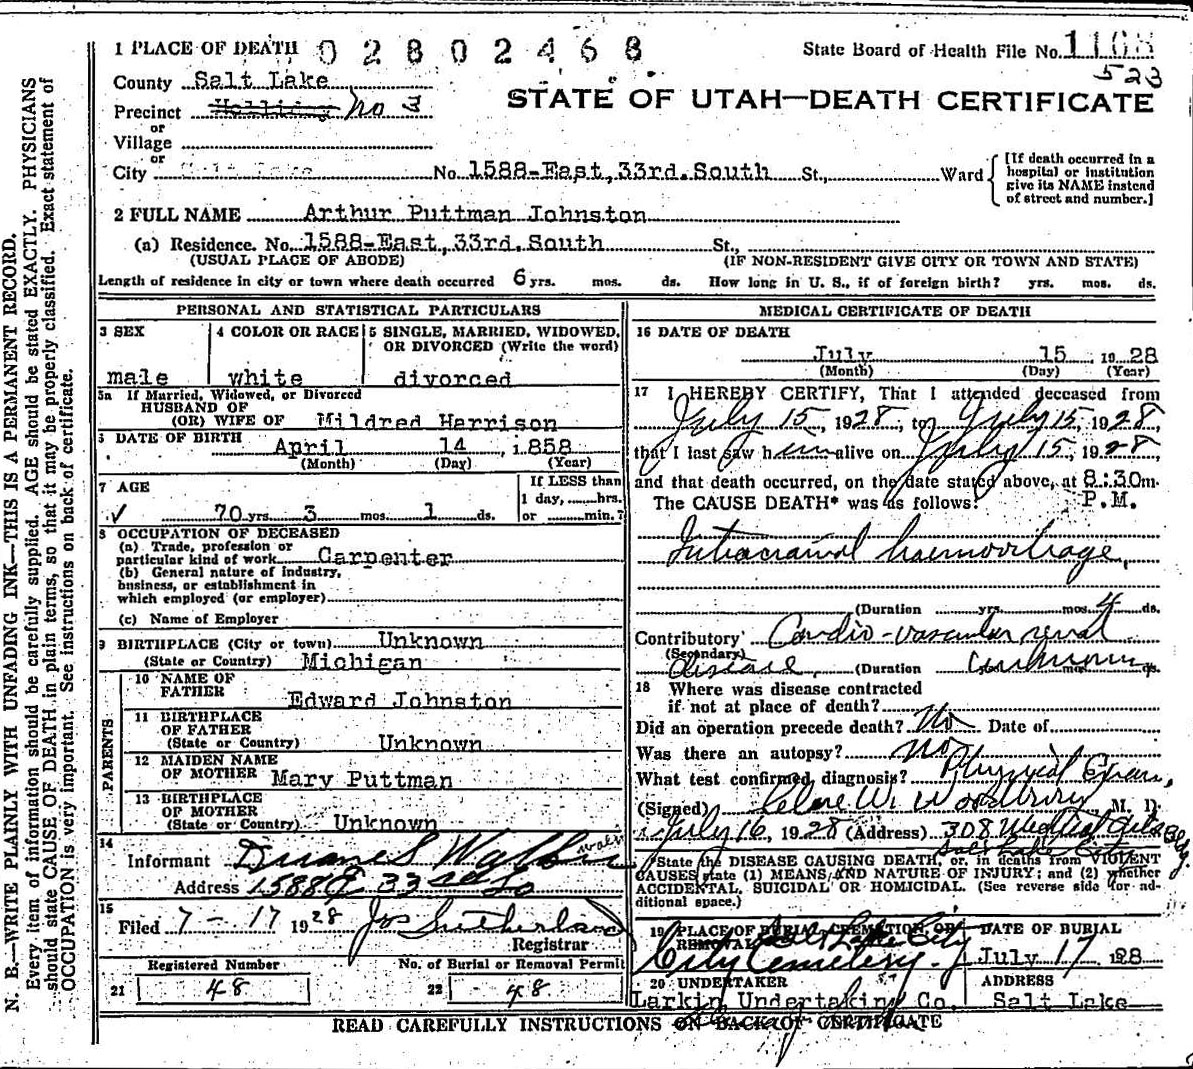 1 PLACE OF DEATH 02802468 State Board of Health File No. 1168
523
County Salt Lake
STATE OF UTAH—DEATH CERTIFICATE
Precinct Holliday No 3
or
Village
or
City Salt Lake No. 1588-East, 33rd. South St., Ward
[If death occurred in a hospital or institution give its NAME instead of street and number.]
2 FULL NAME Arthur Puttman Johnston
(a) Residence. No. 1588-East, 33rd. South St.,
(USUAL PLACE OF ABODE) (IF NON-RESIDENT GIVE CITY OR TOWN AND STATE)
Length of residence in city or town where death occurred 6 yrs. mos. ds. How long in U. S., if of foreign birth? yrs. mos. ds.
PERSONAL AND STATISTICAL PARTICULARS
3 SEX
male
4 COLOR OR RACE
white
5 SINGLE, MARRIED, WIDOWED, OR DIVORCED (Write the word)
divorced
5a If Married, Widowed, or Divorced
HUSBAND OF
(OR) WIFE OF Mildred Harrison
6 DATE OF BIRTH
April 14, 1858
(Month) (Day) (Year)
7 AGE
70 yrs. 3 mos. 1 ds.
If LESS than
1 day, hrs.
or min.?
8 OCCUPATION OF DECEASED
(a) Trade, profession or
particular kind of work Carpenter
(b) General nature of industry,
business, or establishment in
which employed (or employer)
(c) Name of Employer
9 BIRTHPLACE (City or town) Unknown
(State or Country) Michigan
PARENTS
10 NAME OF
FATHER Edward Johnston
11 BIRTHPLACE
OF FATHER
(State or Country) Unknown
12 MAIDEN NAME
OF MOTHER Mary Puttman
13 BIRTHPLACE
OF MOTHER
(State or Country) Unknown
14
Informant Duane S
Address 1588 E 33rd So
15
Filed 7-17 1928 Jos Sutherland
Registrar
Registered Number
21 48
No. of Burial or Removal Permit
22 48
MEDICAL CERTIFICATE OF DEATH
16 DATE OF DEATH
July 15 1928
(Month) (Day) (Year)
17 I HEREBY CERTIFY, That I attended deceased from
July 15, 1928, to July 15, 1928,
that I last saw him alive on July 15, 1928
and that death occurred, on the date stated above, at 8:30m.
The CAUSE DEATH* was as follows: P.M.
Intracranial haemorrhage,
(Duration yrs. mos. 4 ds.
Contributory Cardio-vascular renal
(Secondary)
disease, (Duration unknown ds.
18 Where was disease contracted
if not at place of death?
Did an operation precede death? No Date of
Was there an autopsy? no
What test confirmed diagnosis? Physical Exam,
(Signed) W. M. D.
July 16, 1928 (Address) 308 Bldg
Salt Lake City
*State the DISEASE CAUSING DEATH, or, in deaths from VIOLENT
CAUSES state (1) MEANS AND NATURE OF INJURY; and (2) whether
ACCIDENTAL, SUICIDAL OR HOMICIDAL. (See reverse side for ad-
ditional space.)
19 PLACE OF BURIAL, CREMATION, OR
REMOVAL Salt Lake City
City Cemetery
DATE OF BURIAL
July 17 1928
20 UNDERTAKER
Larkin Undertaking Co.
ADDRESS
Salt Lake
READ CAREFULLY INSTRUCTIONS ON BACK OF CERTIFICATE
N. B.—WRITE PLAINLY WITH UNFADING INK—THIS IS A PERMANENT RECORD.
Every item of information should be carefully supplied. AGE should be stated EXACTLY. PHYSICIANS
should state CAUSE OF DEATH in plain terms, so that it may be properly classified. Exact statement of
OCCUPATION is very important. See instructions on back of certificate.